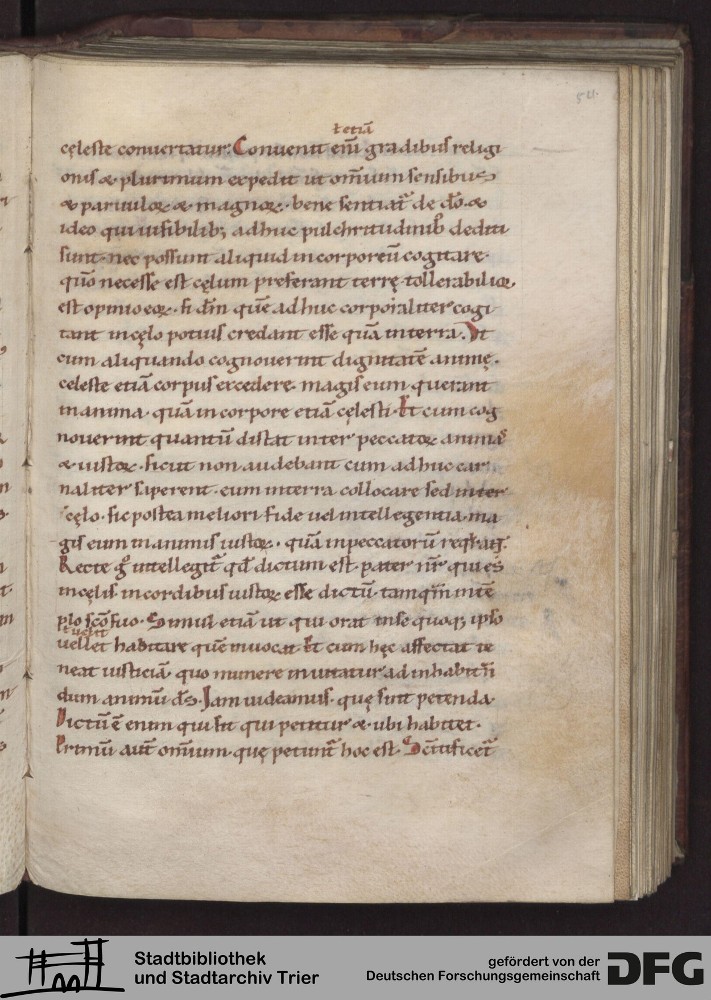 54.
ł etiā
cęleste conuertatur; Conuenit eni͂ gradibus religi
onis & plurimum expedit ut om̄ium sensibus
& paruuloꝝ & magnoꝝ · bene sentiat᷑ de d̄o · &
ideo qui uisibilibꝫ adhuc pulchritudinibꝫ dediti
sunt · nec possunt aliquid incorporeū cogitare ·
quō necesse est cęlum preferant terrę · tollerabilior
est opinio eoꝝ · si d̄m quē adhuc corporaliter cogi
tant in cęlo potius credant esse quā in terra. Vt
cum aliquando cognouerint dignitatē animę ·
celeste etiā corpus excedere · magis eum querant
in anima · quā in corpore etiā cęlesti · Et cum cog
nouerint quantū distat inter peccatoꝝ animas
& iustoꝝ · sicut non audebant cum adhuc car
naliter saperent · eum in terra collocare sed in
cęlo · sic postea meliori fide uel intellegentia · ma
gis eum in animis iustoꝝ · quā in peccatorū
Recte g̊ intellegit᷑ qd̄ dictum est · pater nr̄ qui es
in cęlis · in cordibus iustoꝝ esse dictū · tamq̄m in tē
plo sc̄o suo · Simul etiā ut qui orat in se quoqꝫ ipso
ł uelit
uellet habitare quē inuocat · Et cum hęc affectat te
neat iusticiā · quo munere inuitatur ad inhabitā
dum animū d̄s · Iam uideamus · quę sint petenda ·
Dictū ē enim qui sit qui petitur & ubi habitet ·
Primū aut̄ om̄ium · quę petunt᷑ hoc est · Sc̄ificet᷑
Stadtbibliothek
und Stadtarchiv Trier
gefördert von der
Deutschen Forschungsgemeinschaft
DFG